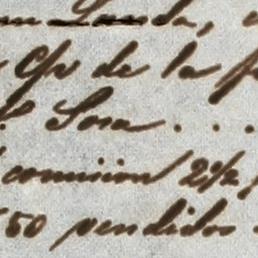 Landa,
C/v de la
Sosa . . .
comision 2½
50 vendidos